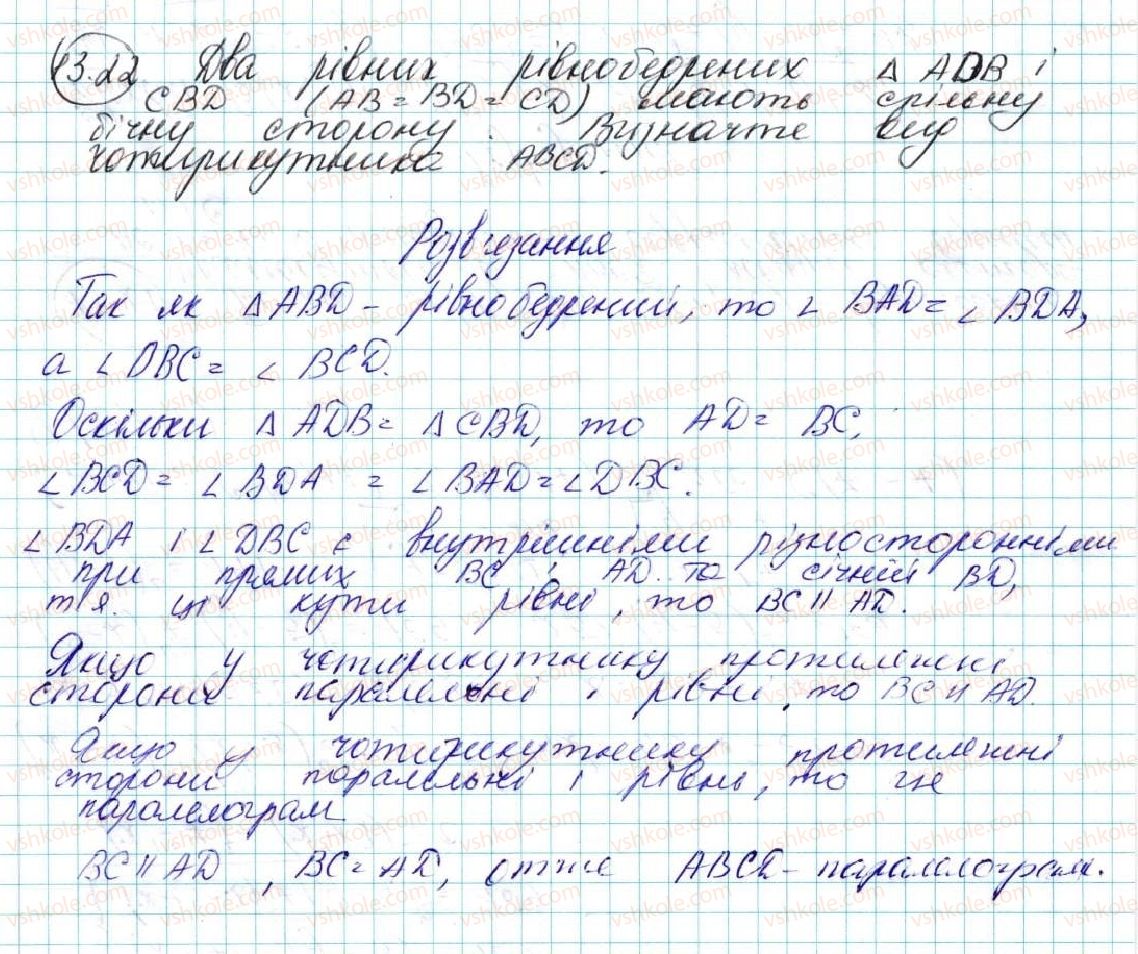 13.22 Два рівних рівнобедрених △ ADB і
CBD (AB = BD = CD) мають спільну
бічну сторону. Визначте вид
чотирикутника ABCD.
Розв'язання
Так як △ ABD - рівнобедрений, то ∠ BAD = ∠ BDA,
а ∠ DBC = ∠ BCD.
Оскільки △ ADB = △ CBD, то AD = BC,
∠ BCD = ∠ BDA = ∠ BAD = ∠ DBC.
∠ BDA і ∠ DBC є внутрішніми різносторонніми
при прямих BC і AD та січній BD,
т.я. ці кути рівні, то BC || AD.
Якщо у чотирикутнику протилежні
сторони паралельні і рівні, то BC || AD.
Якщо у чотирикутнику протилежні
сторони паралельні і рівні, то це
паралелограм
BC || AD, BC = AD, отже ABCD - паралелограм.